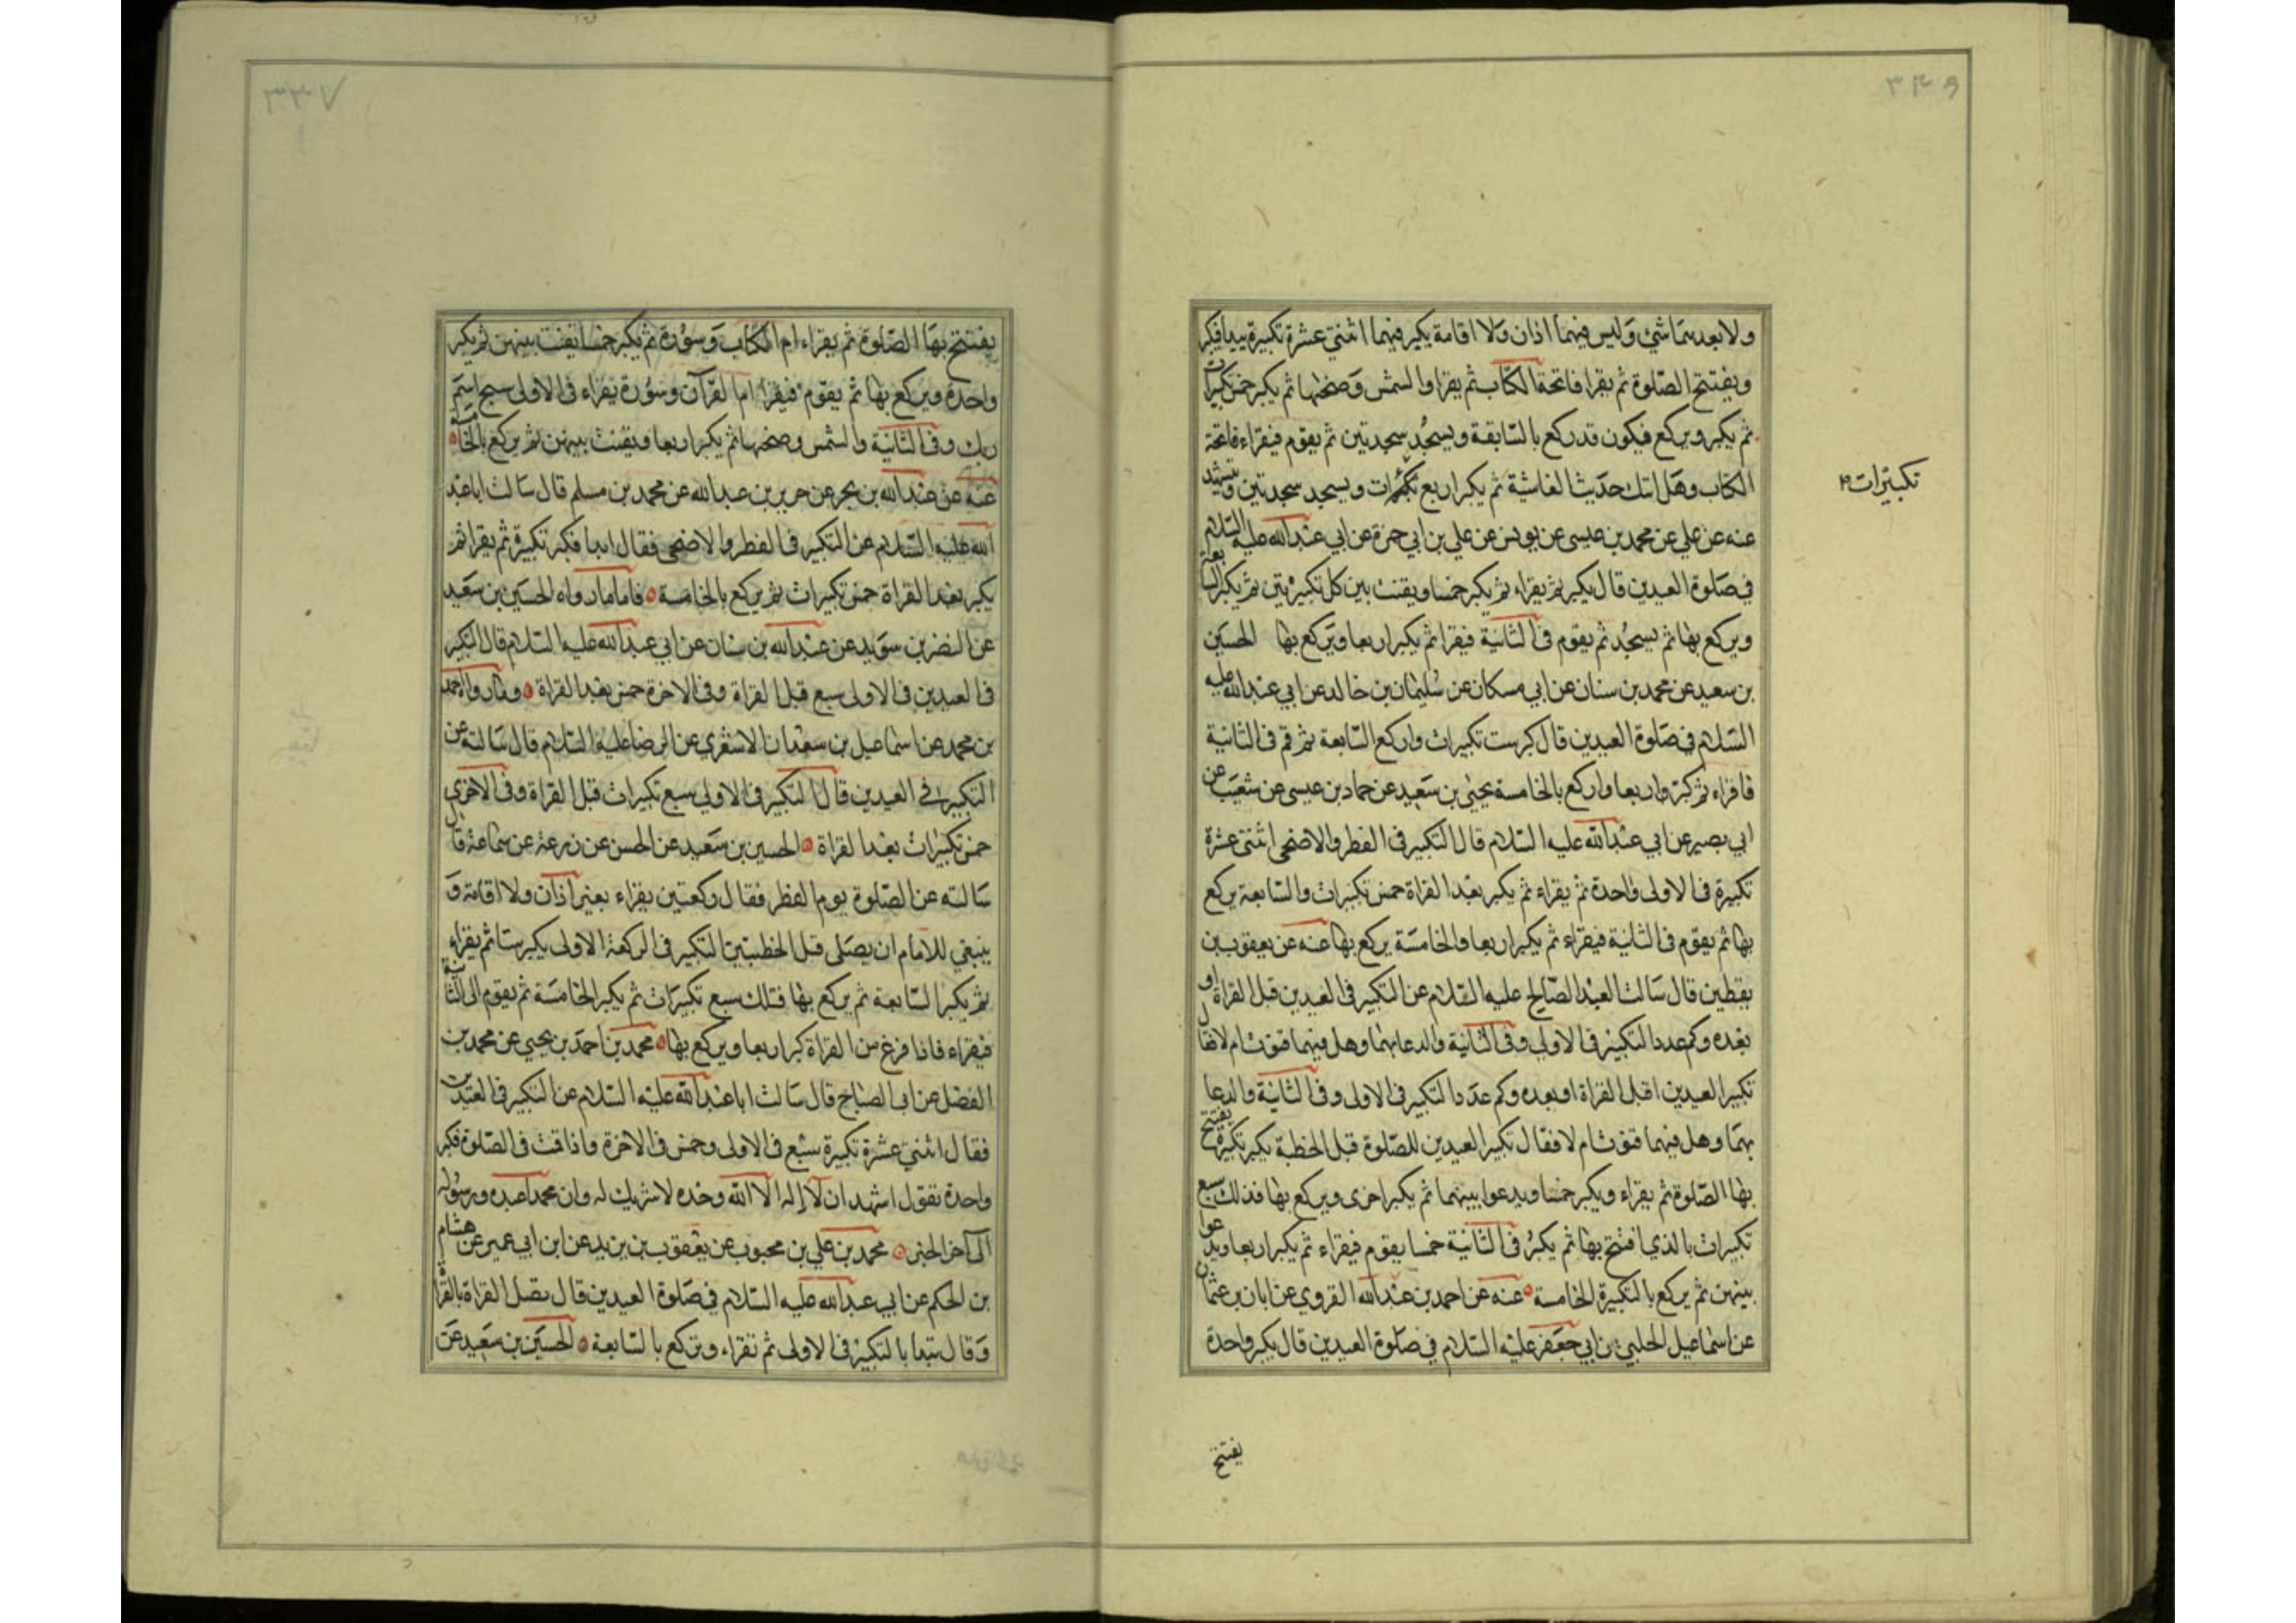 ٣٤٦
ولا بعدهما شئ وليس فيهما اذان ولا اقامة يكبر فيهما اثنتي عشرة تكبيرة يبدا فيكبر
ويفتتح الصلوة ثم يقرا فاتحة الكتاب ثم يقرا والشمس وضحيها ثم يكبر خمس تكبيرات
ثم يكبر ويركع فيكون قد ركع بالسابعة ويسجد سجدتين ثم يقوم فيقراء فاتحة
الكتاب وهل اتيك حديث الغاشية ثم يكبر اربع تكبيرات ويسجد سجدتين ويتشهد
تكبيرات
عنه عن علي عن محمد بن عيسى عن يونس عن علي بن ابي حمزة عن ابي عبدالله عليه السلام
في صلوة العيدين قال يكبر ثم يقراء ثم يكبر خمسا ويقنت بين كل تكبيرتين ثم يكبر السابعة
ويركع بها ثم يسجد ثم يقوم في الثانية فيقرا ثم يكبر اربعا ويركع بها الحسين
بن سعيد عن محمد بن سنان عن ابي مسكان عن سليمان بن خالد عن ابي عبدالله عليه
السلام في صلوة العيدين قال كبر ست تكبيرات واركع السابعة ثم قم في الثانية
فاقراء ثم كبر اربعا واركع بالخامسة يحيى بن سعيد عن حماد بن عيسى عن شعيب عن
ابي بصير عن ابي عبدالله عليه السلام قال التكبير في الفطر والاضحى اثنتى عشرة
تكبيرة في الاولى واحدة ثم يقراء ثم يكبر بعد القراة خمس تكبيرات والسابعة يركع
بها ثم يقوم في الثانية فيقراء ثم يكبر اربعا والخامسة يركع بها عنه عن يعقوب بن
يقطين قال سالت العبد الصالح عليه السلام عن التكبير في العيدين قبل القراة او
بعده وكم عدد التكبير في الاولى وفي الثانية والدعا بهما وهل فيهما قنوت ام لا فقال
تكبير العيدين اقبل القراة او بعده وكم عدد التكبير في الاولى وفي الثانية والدعا
بهما وهل فيهما قنوت ام لا فقال تكبير العيدين للصلوة قبل الخطبة يكبر تكبيرة يفتتح
بها الصلوة ثم يقراء ويكبر خمسا ويدعوا بينهما ثم يكبر اخرى ويركع بها فذلك سبع
تكبيرات بالذي افتتح بها ثم يكبر في الثانية خمسا يقوم فيقراء ثم يكبر اربعا ويدعوا
بينهن ثم يركع بالتكبيرة الخامسة عنه عن احمد بن عبدالله القروي عن ابان بن عثمان
عن اسماعيل الحلبي عن ابي جعفر عليه السلام في صلوة العيدين قال يكبر واحدة
يفتتح
يفتتح بها الصلوة ثم يقراء ام الكتاب وسورة ثم يكبر خمسا يقنت بينهن ثم يكبر
واحدة ويركع بها ثم يقوم فيقرا ام القرآن وسورة يقراء في الاولى سبح اسم
ربك وفي الثانية والشمس وضحيها ثم يكبر اربعا ويقنت بينهن ثم يركع بالخامسة
عنه عن عبدالله بن بحر عن حريز بن عبدالله عن محمد بن مسلم قال سالت ابا عبد
الله عليه السلام عن التكبير في الفطر والاضحى فقال ابدا فكبر تكبيرة ثم يقرا ثم
يكبر بعد القراة خمس تكبيرات ثم يركع بالخامسة فاما ما رواه الحسين بن سعيد
عن النضر بن سويد عن عبدالله بن سنان عن ابي عبدالله عليه السلام قال التكبير
في العيدين في الاولى سبع قبل القراة وفي الاخرة خمس بعد القراة وما رواه احمد
بن محمد عن اسماعيل بن سعدان الاشعري عن الرضا عليه السلام قال سالته عن
التكبير في العيدين قال التكبير في الاولى سبع تكبيرات قبل القراة وفي الاخرى
خمس تكبيرات بعد القراة الحسين بن سعيد عن الحسن عن زرعة عن سماعة قال
سالته عن الصلوة يوم الفطر فقال ركعتين يقراء بغير اذان ولا اقامة و
ينبغي للامام ان يصلى قبل الخطبتين التكبير في الركعة الاولى يكبر ستا ثم يقراء
ثم يكبر السابعة ثم يركع بها فتلك سبع تكبيرات ثم يكبر الخامسة ثم يقوم الى الثانية
فيقراء فاذا فرغ من القراة كبر اربعا ويركع بها محمد بن احمد بن يحيى عن محمد بن
الفضل عن ابي الصباح قال سالت ابا عبدالله عليه السلام عن التكبير في العيدين
فقال اثنتي عشرة تكبيرة سبع في الاولى وخمس في الاخرة واذا قمت في الصلوة فكبر
واحدة تقول اشهد ان لا اله الا الله وحده لا شريك له وان محمدا عبده ورسوله
الى آخر الخبر محمد بن علي بن محبوب عن يعقوب بن يزيد عن ابن ابي عمير عن هشام
بن الحكم عن ابي عبدالله عليه السلام في صلوة العيدين قال تصل القراة بالقراة
وقال تبدا بالتكبير في الاولى ثم تقراء وتركع بالسابعة الحسين بن سعيد عن